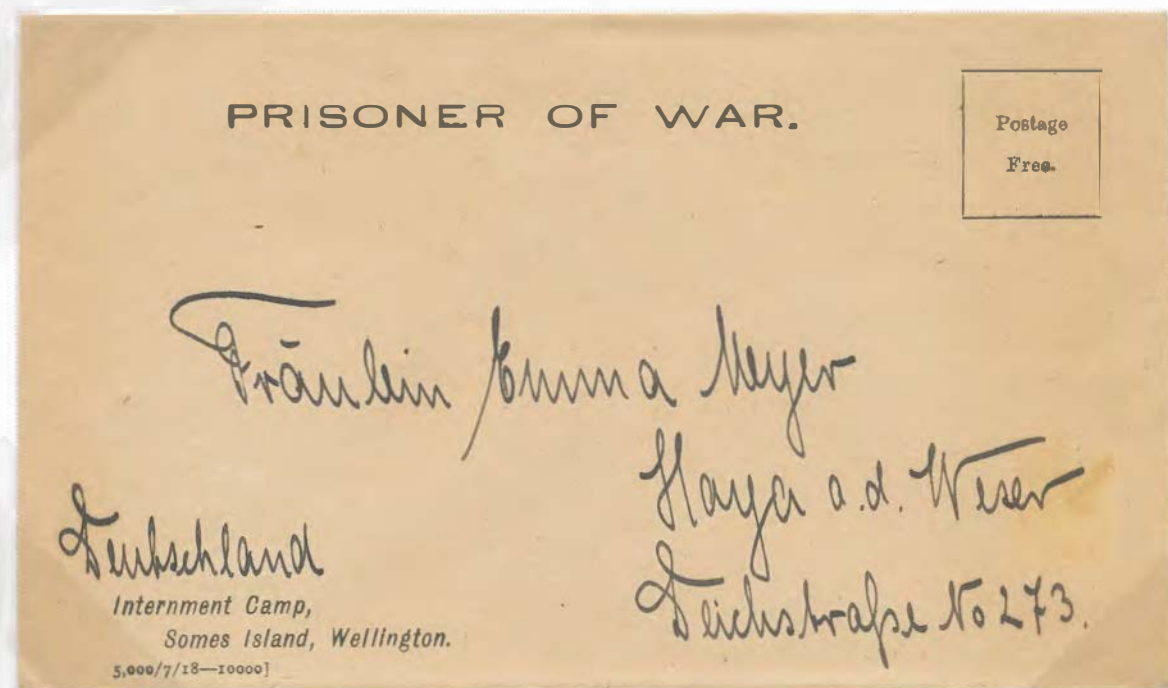 PRISONER OF WAR.
Postage
Free.
Fräulein Emma Meyer
Haya a.d. Weser
Deutschland
Deichstraße No 273.
Internment Camp,
Somes Island, Wellington.
5,000/7/18—10000]